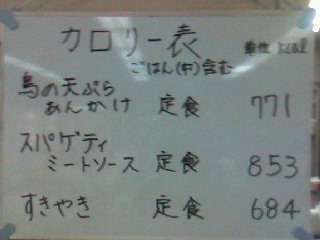 カロリー表 単位 kcal
ごはん(中)含む
鳥の天ぷら
あんかけ 定食 771
スパゲティ
ミートソース 定食 853
すきやき 定食 684